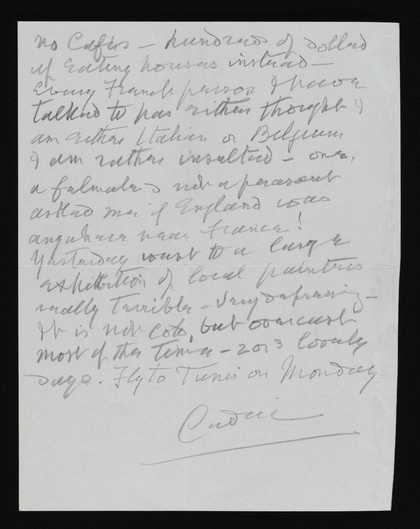 no Cafés – hundreds of
of eating houses instead –
Every French person I have
talked to has either thought I
am either Italian or Belgium
I am rather insulted – one,
a female & not a peasant
asked me if England was
anywhere near France!
Yesterday went to a large
exhibition of local painters
really terrible – Very depressing –
It is not cold, but overcast
most of the time – 2 or 3 lovely
days. Fly to Tunis on Monday